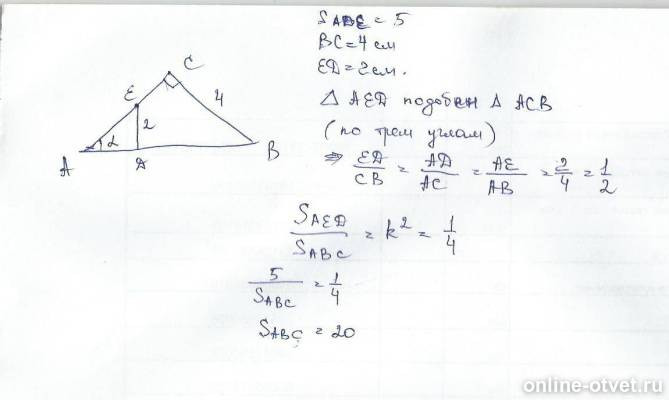 S_ADE = 5
BC = 4 см
ED = 2 см.
△ AED подобен △ ACB
(по трем углам)
⇒ ED/CB = AD/AC = AE/AB = 2/4 = 1/2
S_AED/S_ABC = k² = 1/4
5/S_ABC = 1/4
S_ABC = 20
C
E
4
2
A
D
B
online-otvet.ru